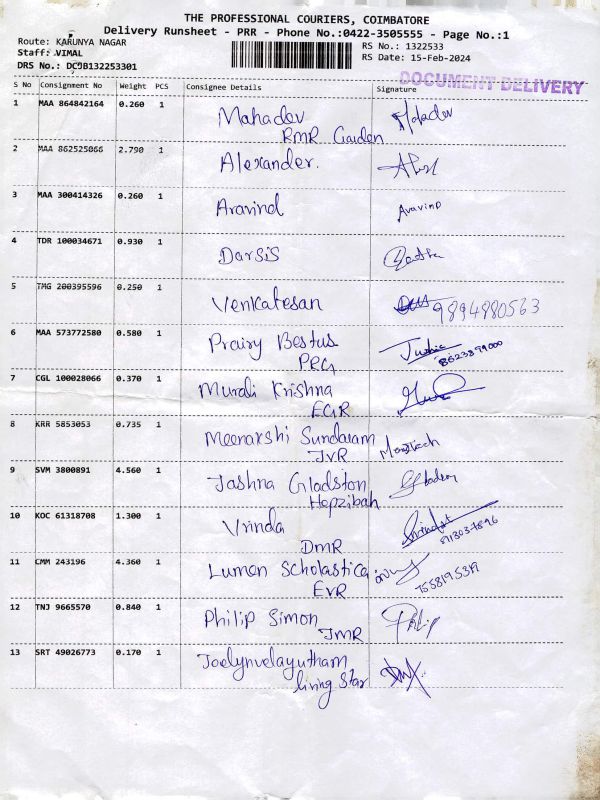 THE PROFESSIONAL COURIERS, COIMBATORE
Delivery Runsheet - PRR - Phone No.:0422-3505555 - Page No.:1
Route: KARUNYA NAGAR
RS No.: 1322533
Staff: VIMAL
RS Date: 15-Feb-2024
DRS No.: DC9B132253301
DOCUMENT DELIVERY
S No Consignment No Weight PCS Consignee Details Signature
1 MAA 864842164 0.260 1 Mahadev Mahadev
RMR Garden
2 MAA 862525066 2.790 1 Alexander.
3 MAA 300414326 0.260 1 Aravind Aravind
4 TDR 100034671 0.930 1 Darsis
5 TMG 200395596 0.250 1 Venkatesan 9894980563
6 MAA 573772580 0.580 1 Prairy Bestus
PRG 8623899000
7 CGL 100028066 0.370 1 Murali Krishna
EGR
8 KRR 5853053 0.735 1 Meenakshi Sundaram
JVR
9 SVM 3800891 4.560 1 Jashna Gladston
Hepzibah
10 KOC 61318708 1.300 1 Vrinda
DMR 8113037896
11 CMM 243196 4.360 1 Lumen Scholastica
EVR
12 TNJ 9665570 0.840 1 Philip Simon Philip
JMR
13 SRT 49026773 0.170 1 Joelynvelayutham
living Star